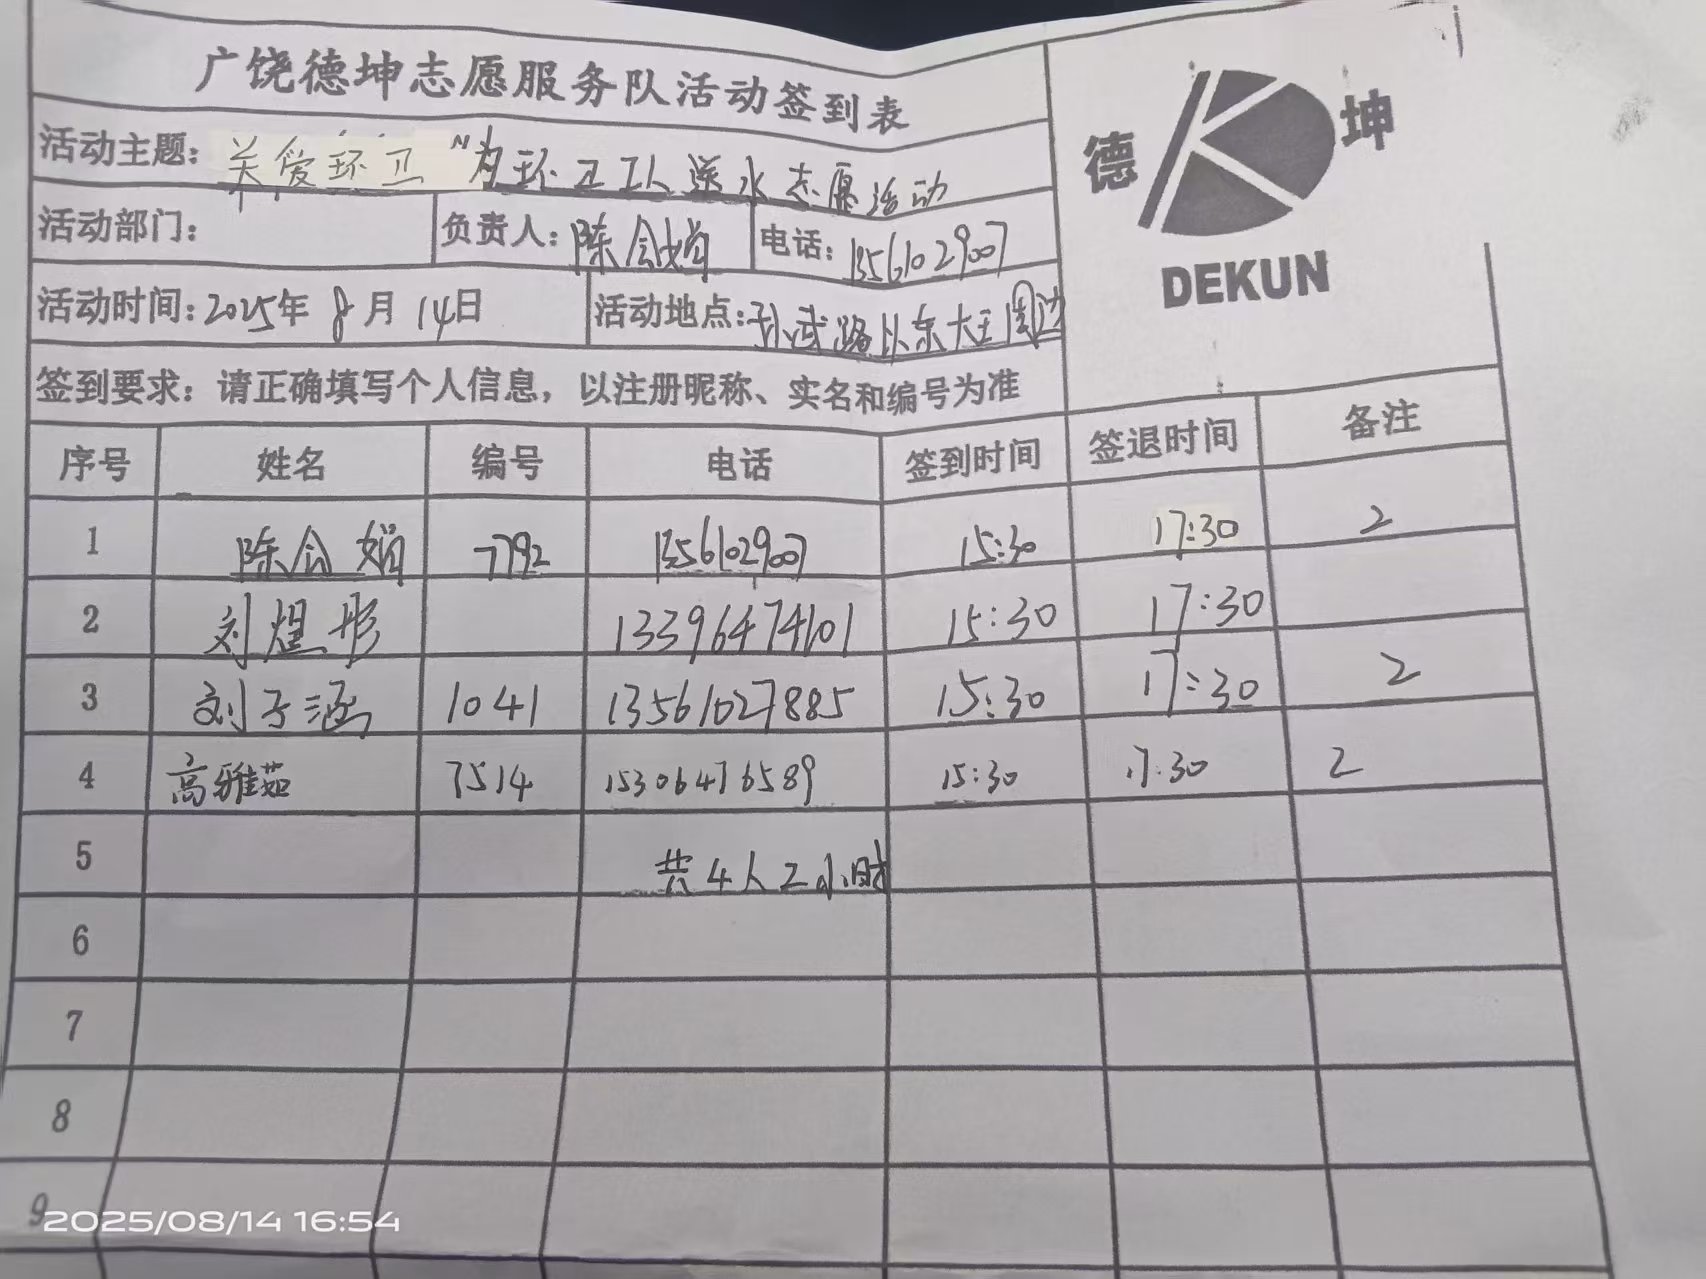 广饶德坤志愿服务队活动签到表
德 坤
DEKUN
活动主题：关爱环卫"为环卫工人送水志愿活动
活动部门： 负责人：陈会娟 电话：13561029007
活动时间：2025年8月14日 活动地点：孙武路以东大王周边
签到要求：请正确填写个人信息，以注册昵称、实名和编号为准
序号 姓名 编号 电话 签到时间 签退时间 备注
1 陈会娟 7792 13561029007 15:30 17:30 2
2 刘煜彤 13396474101 15:30 17:30
3 刘子涵 1041 13561027885 15:30 17:30 2
4 高雅茹 7514 15306476589 15:30 17:30 2
5 共4人2小时
6
7
8
9
2025/08/14 16:54